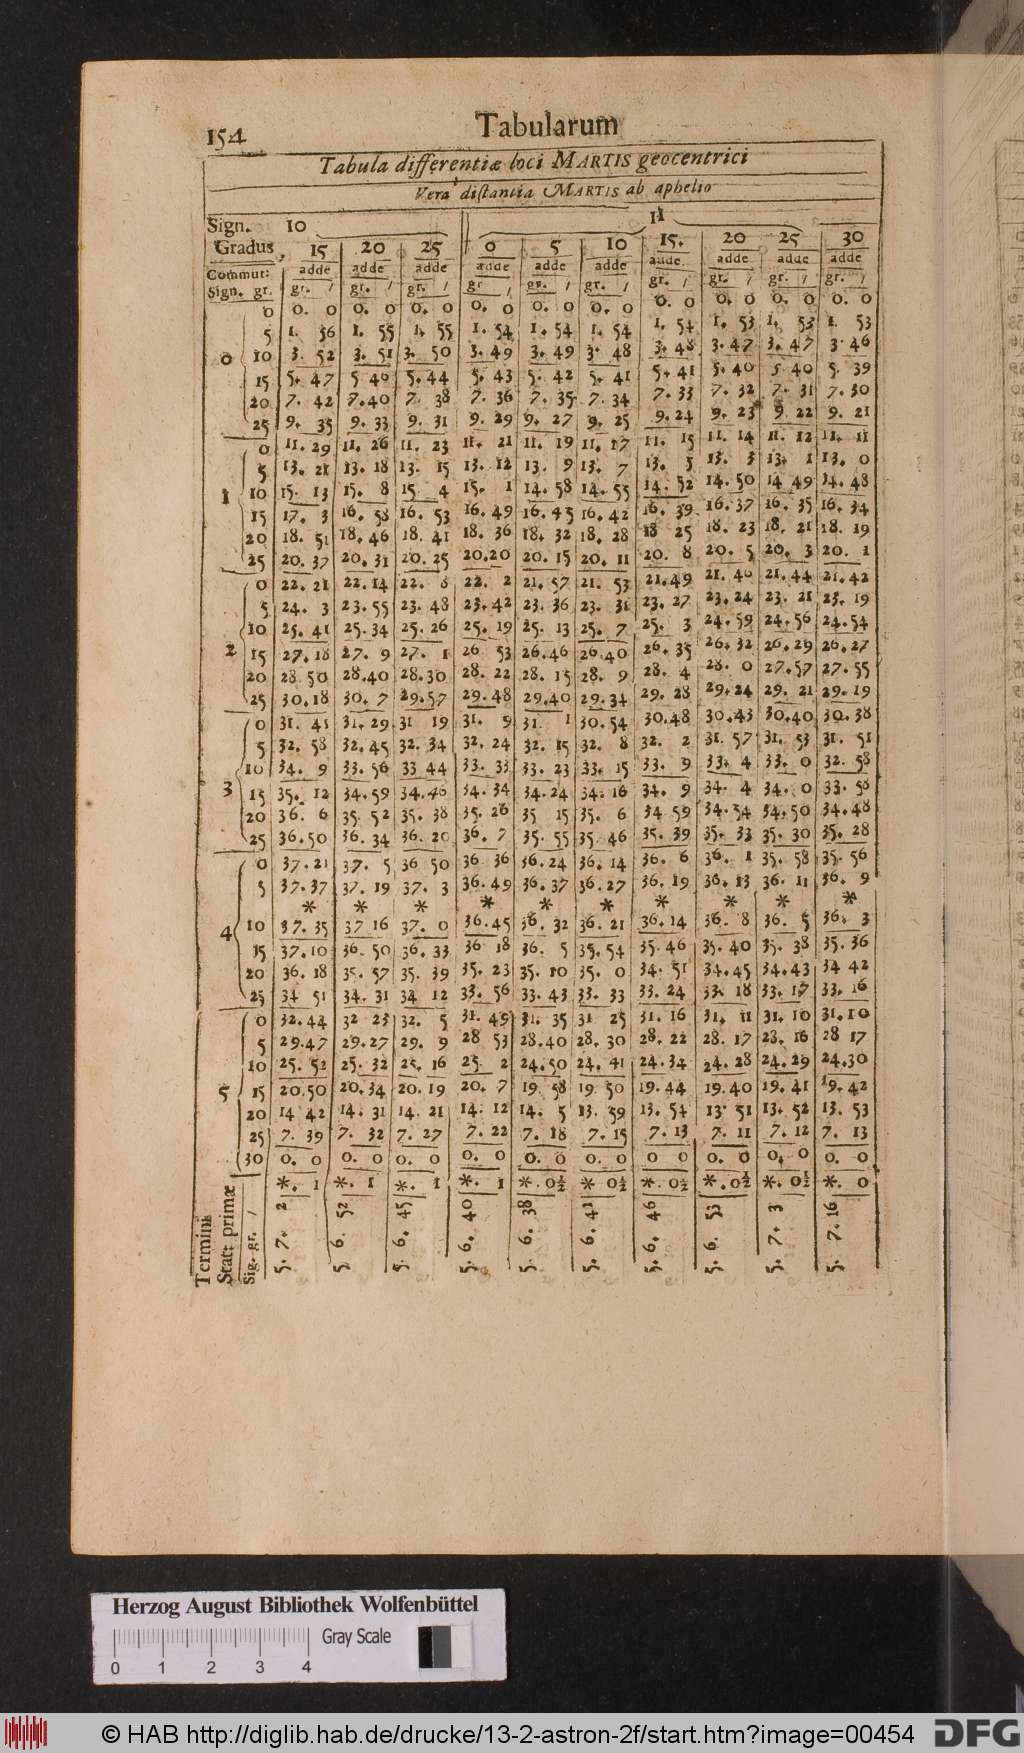 154 Tabularum
Tabula differentiæ loci MARTIS geocentrici
Vera distantia MARTIS ab aphelio
Sign. 10 11
Gradus 15 20 25 0 5 10 15. 20 25 30
Commut: adde adde adde adde adde adde adde adde adde adde
Sign. gr. gr. / gr. / gr. / gr / gr. / gr. / gr. / gr. / gr. / gr. /
0 0. 0 0. 0 0. 0 0. 0 0. 0 0. 0 0. 0 0. 0 0. 0 0. 0
5 1. 56 1. 55 1. 55 1. 54 1. 54 1. 54 1. 54 1. 53 1. 53 1. 53
0 10 3. 52 3. 51 3. 50 3. 49 3. 49 3. 48 3. 48 3. 47 3. 47 3. 46
15 5. 47 5 46 5. 44 5. 43 5. 42 5. 41 5. 41 5. 40 5 40 5. 39
20 7. 42 7. 40 7. 38 7. 36 7. 35 7. 34 7. 33 7. 32 7. 31 7. 30
25 9. 35 9. 33 9. 31 9. 29 9. 27 9. 25 9. 24 9. 23 9. 22 9. 21
0 11. 29 11. 26 11. 23 11. 21 11. 19 11. 17 11. 15 11. 14 11. 12 11. 11
5 13. 21 13. 18 13. 15 13. 12 13. 9 13. 7 13. 5 13. 3 13. 1 13. 0
1 10 15. 13 15. 8 15. 4 15. 1 14. 58 14. 55 14. 52 14. 50 14 49 14. 48
15 17. 3 16. 58 16. 53 16. 49 16. 45 16. 42 16. 39 16. 37 16. 35 16. 34
20 18. 51 18. 46 18. 41 18. 36 18. 32 18. 28 18 25 18. 23 18. 21 18. 19
25 20. 37 20. 31 20. 25 20. 20 20. 15 20. 11 20. 8 20. 5 20. 3 20. 1
0 22. 21 22. 14 22. 8 22. 2 21. 57 21. 53 21. 49 21. 46 21. 44 21. 42
5 24. 3 23. 55 23. 48 23. 42 23. 36 23. 31 23. 27 23. 24 23. 21 23. 19
2 10 25. 41 25. 34 25. 26 25. 19 25. 13 25. 7 25. 3 24. 59 24. 56 24. 54
15 27. 18 27. 9 27. 1 26 53 26. 46 26. 40 26. 35 26. 32 26. 29 26. 27
20 28 50 28. 40 28. 30 28. 22 28. 15 28. 9 28. 4 28. 0 27. 57 27. 55
25 30. 18 30. 7 29. 57 29. 48 29. 40 29. 34 29. 28 29. 24 29. 21 29. 19
0 31. 41 31. 29 31 19 31. 9 31. 1 30. 54 30. 48 30. 43 30. 40 30. 38
5 32. 58 32. 45 32. 34 32. 24 32. 15 32. 8 32. 2 31. 57 31. 53 31. 51
3 10 34. 9 33. 56 33 44 33. 33 33. 23 33. 15 33. 9 33. 4 33. 0 32. 58
15 35. 12 34. 59 34. 46 34. 34 34. 24 34. 16 34. 9 34. 4 34. 0 33. 58
20 36. 6 35 52 35. 38 35. 26 35 15 35. 6 34 59 34. 54 34. 50 34. 48
25 36. 50 36. 34 36. 20 36. 7 35. 55 35. 46 35. 39 35. 33 35. 30 35. 28
0 37. 21 37. 5 36 50 36 36 36. 24 36. 14 36. 6 36. 1 35. 58 35. 56
5 37. 37 37. 19 37. 3 36. 49 36. 37 36. 27 36. 19 36. 13 36. 11 36. 9
* * * * * * * * * *
4 10 37. 35 37 16 37. 0 36. 45 36. 32 36. 21 36. 14 36. 8 36. 5 36. 3
15 37. 10 36. 50 36. 33 36 18 36. 5 35. 54 35. 46 35. 40 35. 38 35. 36
20 36. 18 35. 57 35. 39 35. 23 35. 10 35. 0 34. 51 34. 45 34. 43 34 42
25 34 51 34. 31 34 12 33. 56 33. 43 33. 33 33. 24 33. 18 33. 17 33. 16
0 32. 44 32 23 32. 5 31. 49 31. 35 31 25 31. 16 31. 11 31. 10 31. 10
5 29. 47 29. 27 29. 9 28 53 28. 40 28. 30 28. 22 28. 17 28. 16 28 17
10 25. 52 25. 32 25. 16 25. 2 24. 50 24. 41 24. 34 24. 28 24. 29 24. 30
5 15 20. 50 20. 34 20. 19 20. 7 19. 58 19. 50 19. 44 19. 40 19. 41 19. 42
20 14 42 14. 31 14. 21 14. 12 14. 5 13. 59 13. 54 13. 51 13. 52 13. 53
25 7. 39 7. 32 7. 27 7. 22 7. 18 7. 15 7. 13 7. 11 7. 12 7. 13
30 0. 0 0. 0 0. 0 0. 0 0. 0 0. 0 0 0 0. 0 0. 0 0. 0
*. 1 *. 1 *. 1 *. 1 *. 0½ *. 0½ *. 0½ *. 0½ *. 0½ *. 0
Termini
Stat: primæ
Sig. gr. / 5. 7. 2 5 6. 52 5. 6. 45 5. 6. 40 5. 6. 38 5. 6. 41 5. 6. 46 5. 6. 53 5. 7. 3 5. 7. 16
Herzog August Bibliothek Wolfenbüttel
Gray Scale
0 1 2 3 4
© HAB http://diglib.hab.de/drucke/13-2-astron-2f/start.htm?image=00454 DFG